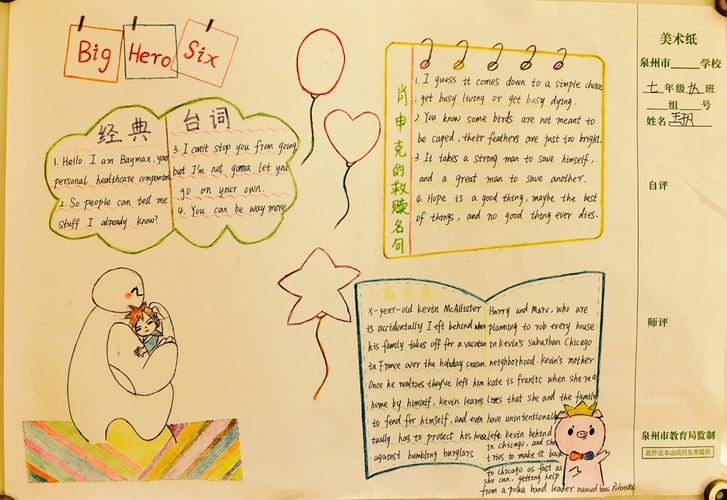 Big
Hero
Six
经典 台词
1. Hello. I am Baymax, your
personal healthcare companion
2. So people can tell me
stuff I already know?
3. I can't stop you from going
but I'm not gonna let you
go on your own.
4. You can be way more
肖申克的救赎名句
1. I guess it comes down to a simple choice
: get busy living or get busy dying.
2. You know some birds are not meant to
be caged, their feathers are just too bright.
3. It takes a strong man to save himself,
and a great man to save another.
4. Hope is a good thing, maybe the best
of things, and no good thing ever dies.
8-year-old kevin McAllister
is accidentally left behind when
his family takes off for a vacation
in France over the holiday season
Once he realizes they've left him
home by himself, kevin learns
to fend for himself, and even
tually has to protect his house
against bumbling burglars
Harry and Marv, who are
planning to rob every house
in kevin's suburban Chicago
neighborhood. Kevin's mother
kate is frantic when she rea
lizes that she and the family
have unintentionally
left kevin behind
in chicago, and she
tries to make it back
to chicago as fast as
she can, getting help
from a polka band leader named Gus Polinski
美术纸
泉州市 学校
七年级 班
组 号
姓名 王玥
自评
师评
泉州市教育局监制
此作业本由政府免费提供